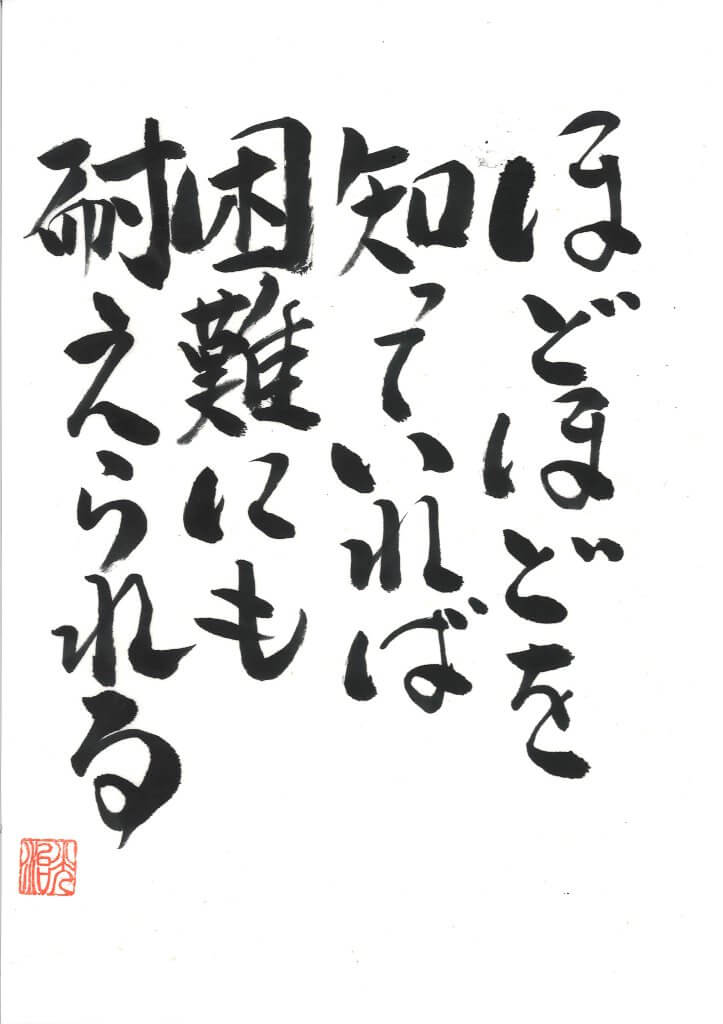 ほどほどを
知っていれば
困難にも
耐えられる